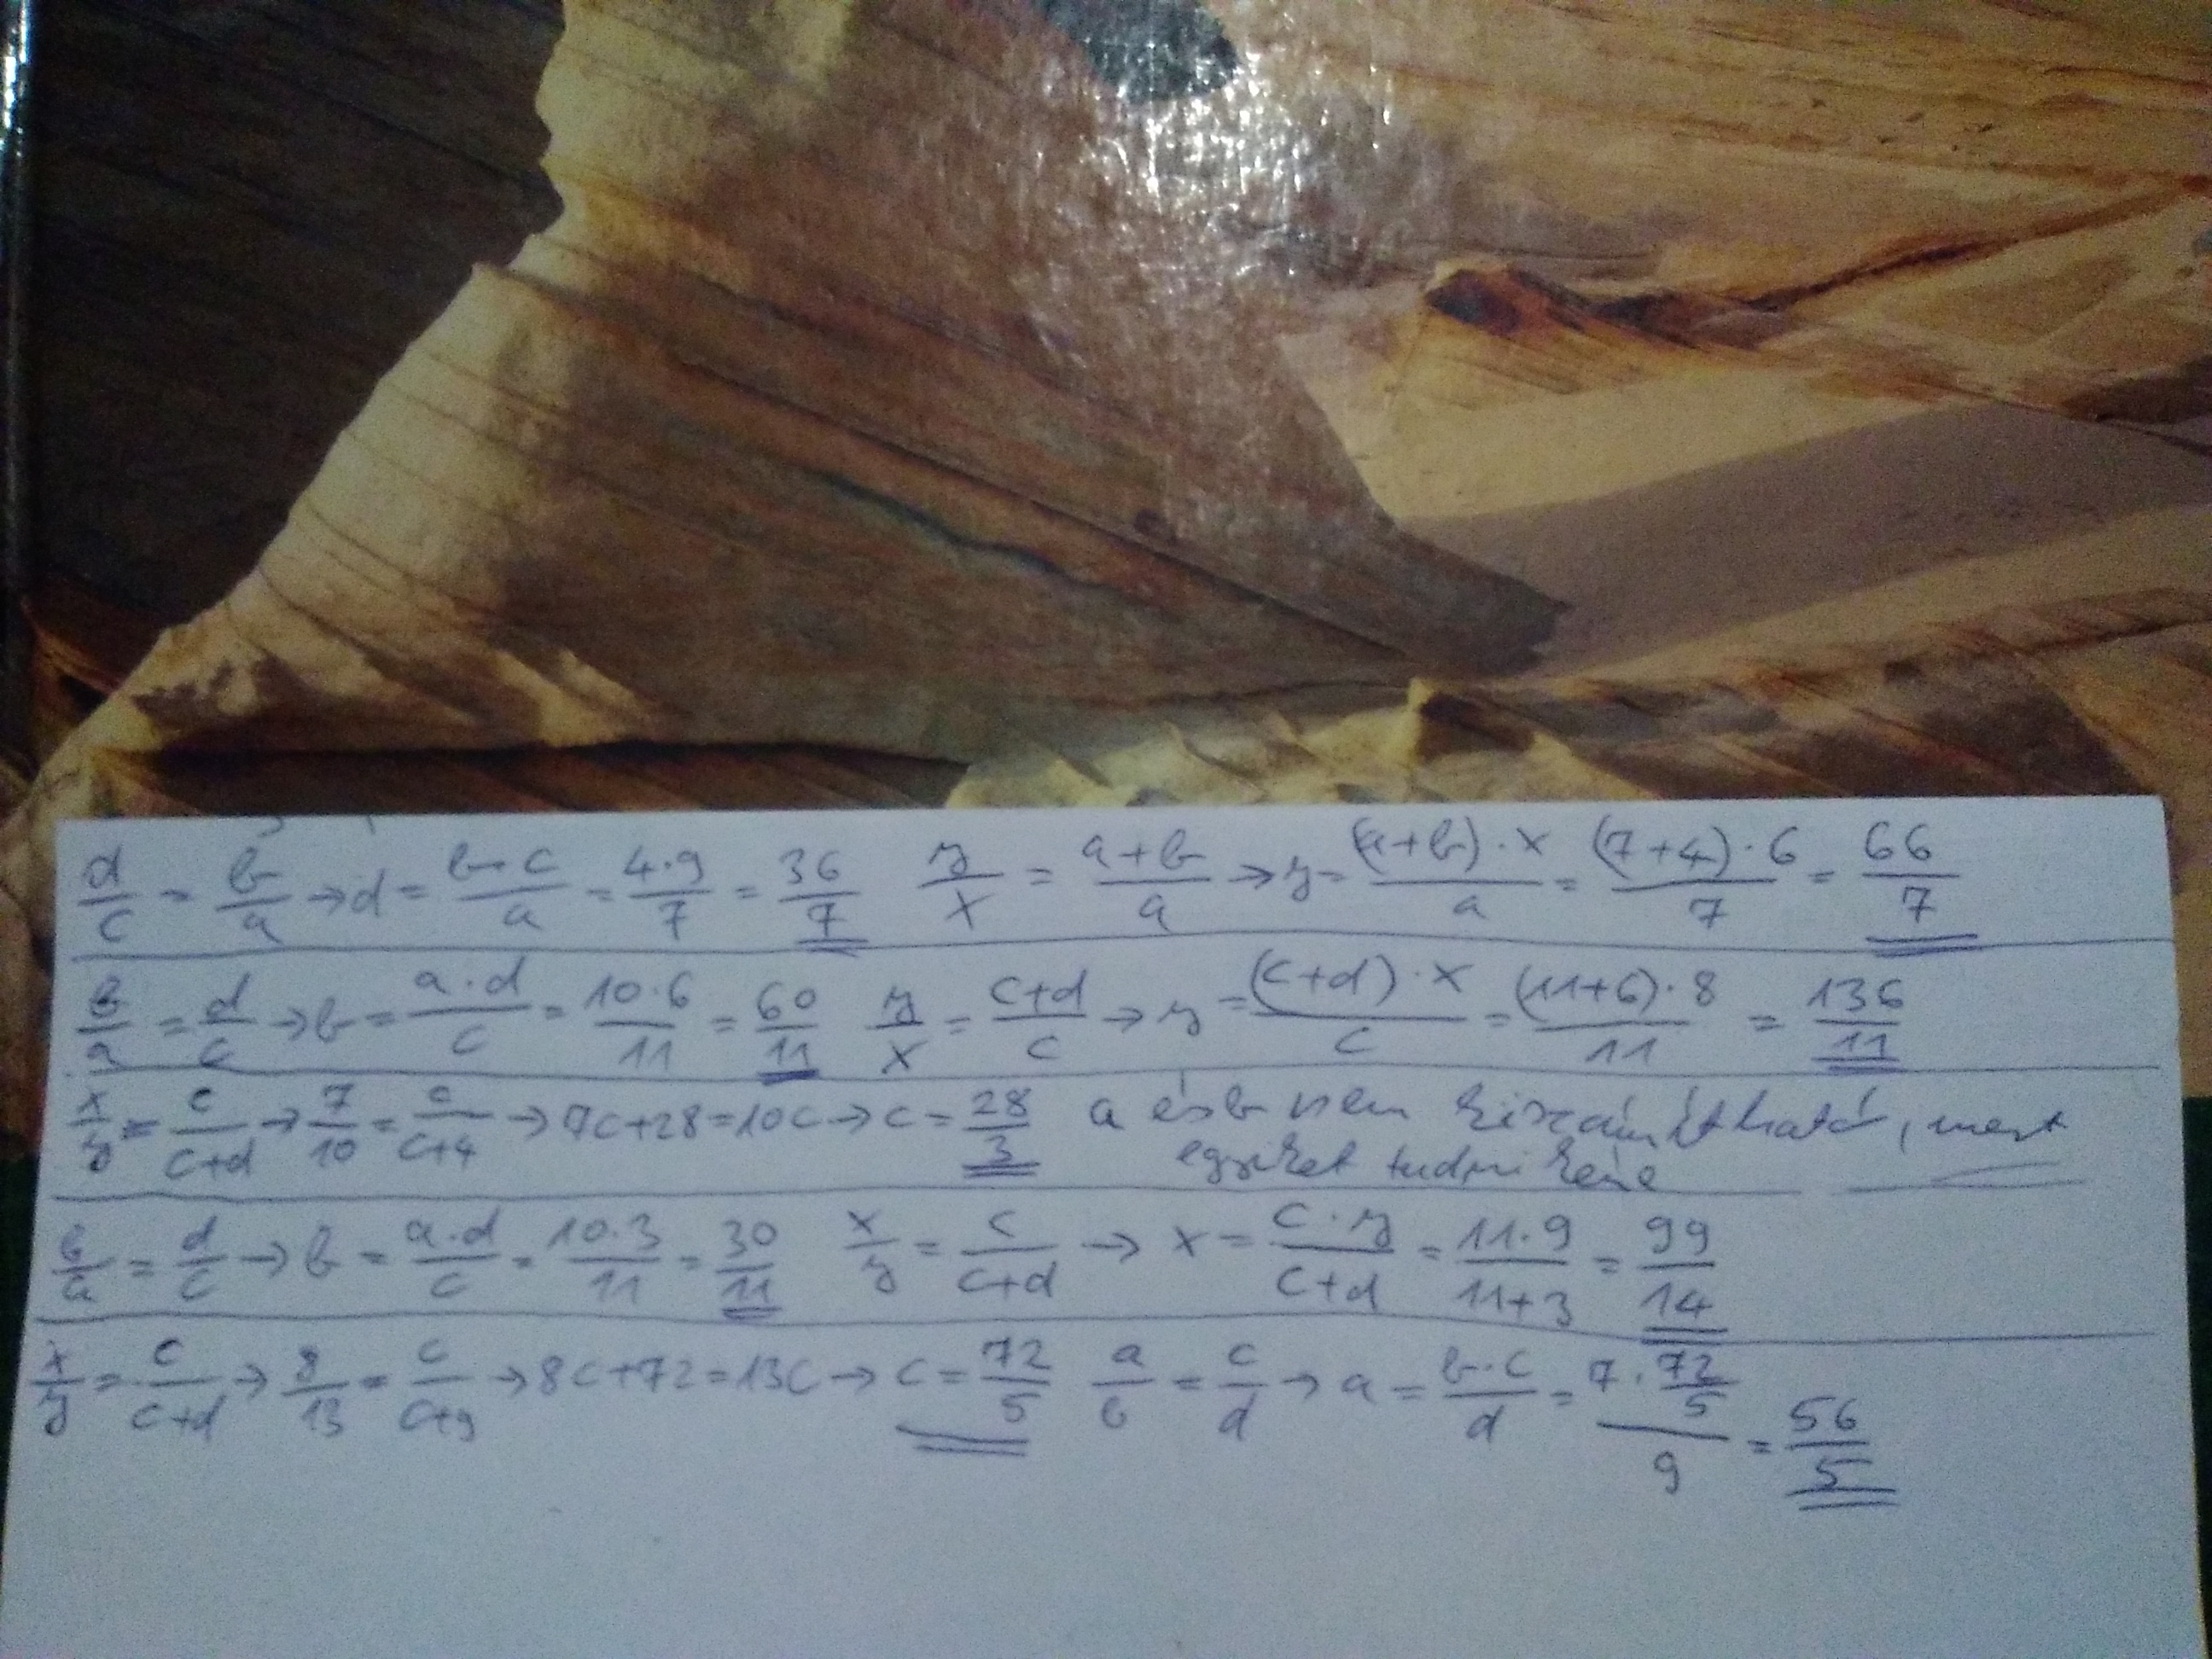 d/c = b/a → d = b·c/a = 4·9/7 = 36/7 y/x = a+b/a → y = (a+b)·x/a = (7+4)·6/7 = 66/7
b/a = d/c → b = a·d/c = 10·6/11 = 60/11 y/x = c+d/c → y = (c+d)·x/c = (11+6)·8/11 = 136/11
x/y = c/c+d → 7/10 = c/c+4 → 7c+28=10c → c = 28/3 a és b nem kiszámítható, mert
egyiket tudni kéne
b/a = d/c → b = a·d/c = 10·3/11 = 30/11 x/y = c/c+d → x = c·y/c+d = 11·9/11+3 = 99/14
x/y = c/c+d → 8/13 = c/c+9 → 8c+72=13c → c = 72/5 a/b = c/d → a = b·c/d = 7·72/5/9 = 56/5